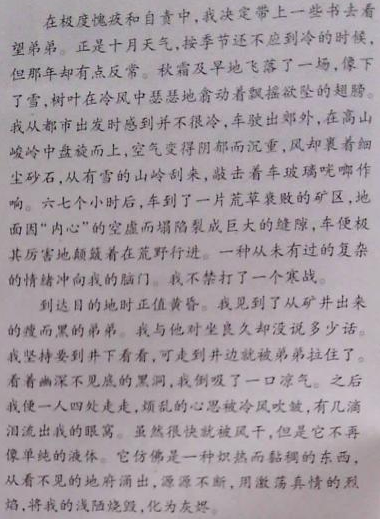 在极度愧疚和自责中，我决定带上一些书去看
望弟弟。正是十月天气，按季节还不应到冷的时候，
但那年却有点反常。秋霜及早地飞落了一场，像下
了雪，树叶在冷风中瑟瑟地翕动着飘摇欲坠的翅膀。
我从都市出发时感到并不很冷，车驶出郊外，在高山
峻岭中盘旋而上，空气变得阴郁而沉重，风却裹着细
尘砂石，从有雪的山岭刮来，敲击着车玻璃咣啷作
响。六七个小时后，车到了一片荒草衰败的矿区，地
面因“内心”的空虚而塌陷裂成巨大的缝隙，车便极
其厉害地颠簸着在荒野行进。一种从未有过的复杂
的情绪冲向我的脑门。我不禁打了一个寒战。
到达目的地时正值黄昏。我见到了从矿井出来
的瘦而黑的弟弟。我与他对坐良久却没说多少话。
我坚持要到井下看看，可走到井边就被弟弟拉住了。
看着幽深不见底的黑洞，我倒吸了一口凉气。之后
我便一人四处走走，烦乱的心思被冷风吹皱，有几滴
泪流出我的眼窝。虽然很快就被风干，但是它不再
像单纯的液体。它仿佛是一种炽热而黏稠的东西，
从看不见的地府涌出，源源不断，用激荡真情的烈
焰，将我的浅陋烧毁，化为灰烬。